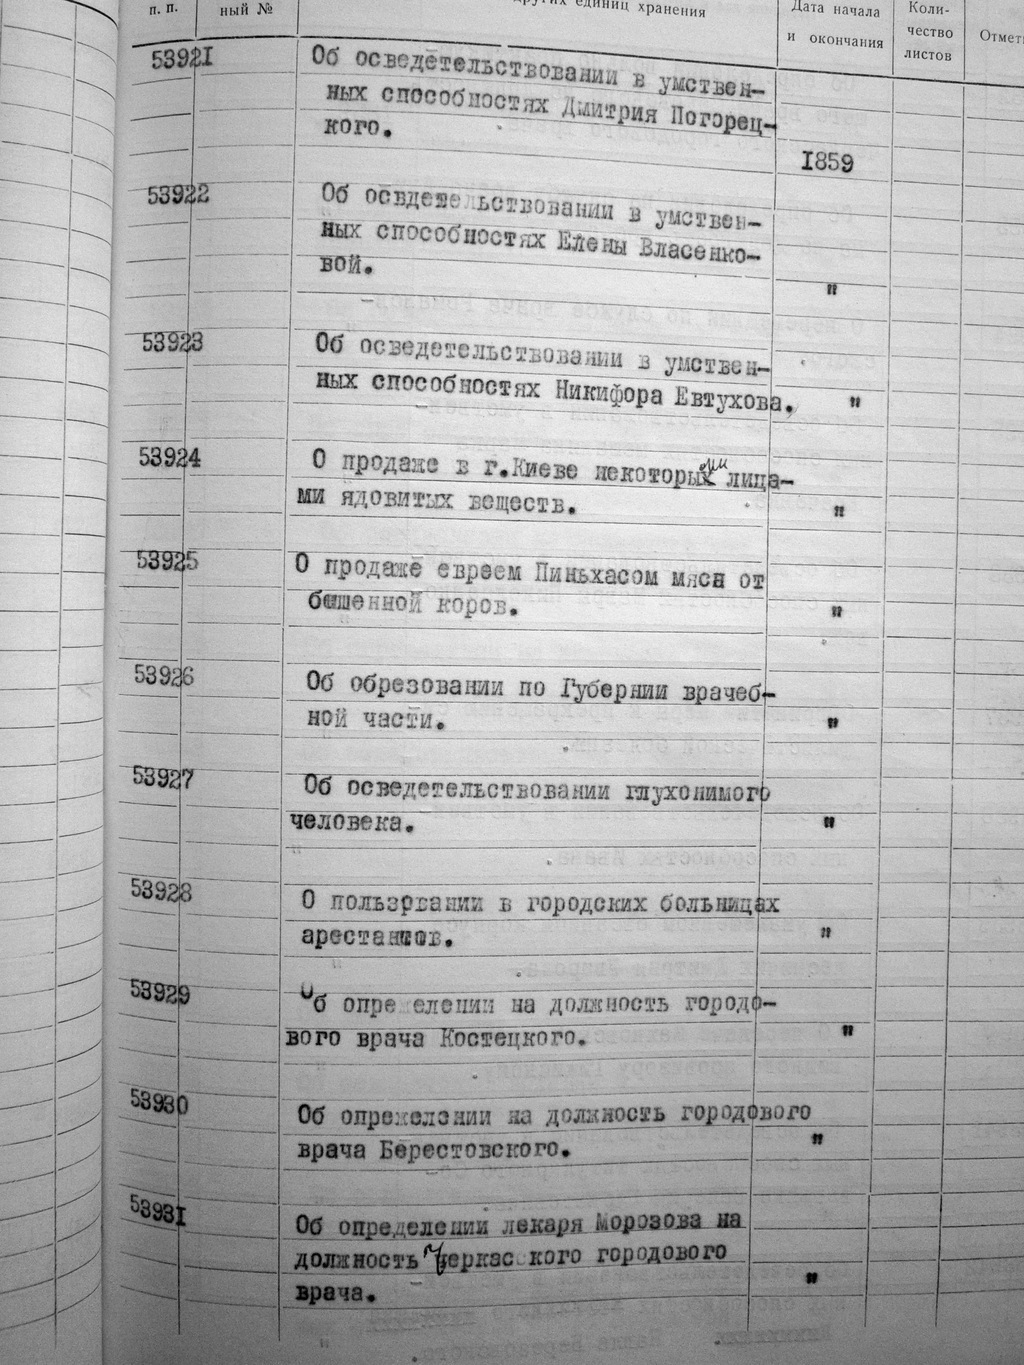 п. п.
ный №
других единиц хранения
Дата начала
и окончания
Коли-
чество
листов
Отмет
53921
Об осведетельствовании в умствен-
ных способностях Дмитрия Погорец-
кого.
1859
53922
Об освдетельствовании в умствен-
ных способностях Елены Власенко-
вой.
"
53923
Об осведетельствовании в умствен-
ных способностях Никифора Евтухова.
"
53924
О продаже в г.Киеве некоторыми лица-
ми ядовитых веществ.
"
53925
О продаже евреем Пиньхасом мяса от
бешенной коров.
"
53926
Об обрезовании по Губернии врачеб-
ной части.
"
53927
Об осведетельствовании глухонимого
человека.
"
53928
О пользовании в городских больницах
арестантов.
"
53929
Об опре елении на должность городо-
вого врача Костецкого.
"
53930
Об опрежелении на должность городового
врача Берестовского.
"
53931
Об определении лекаря Морозова на
должность Черкас кого городового
врача.
"